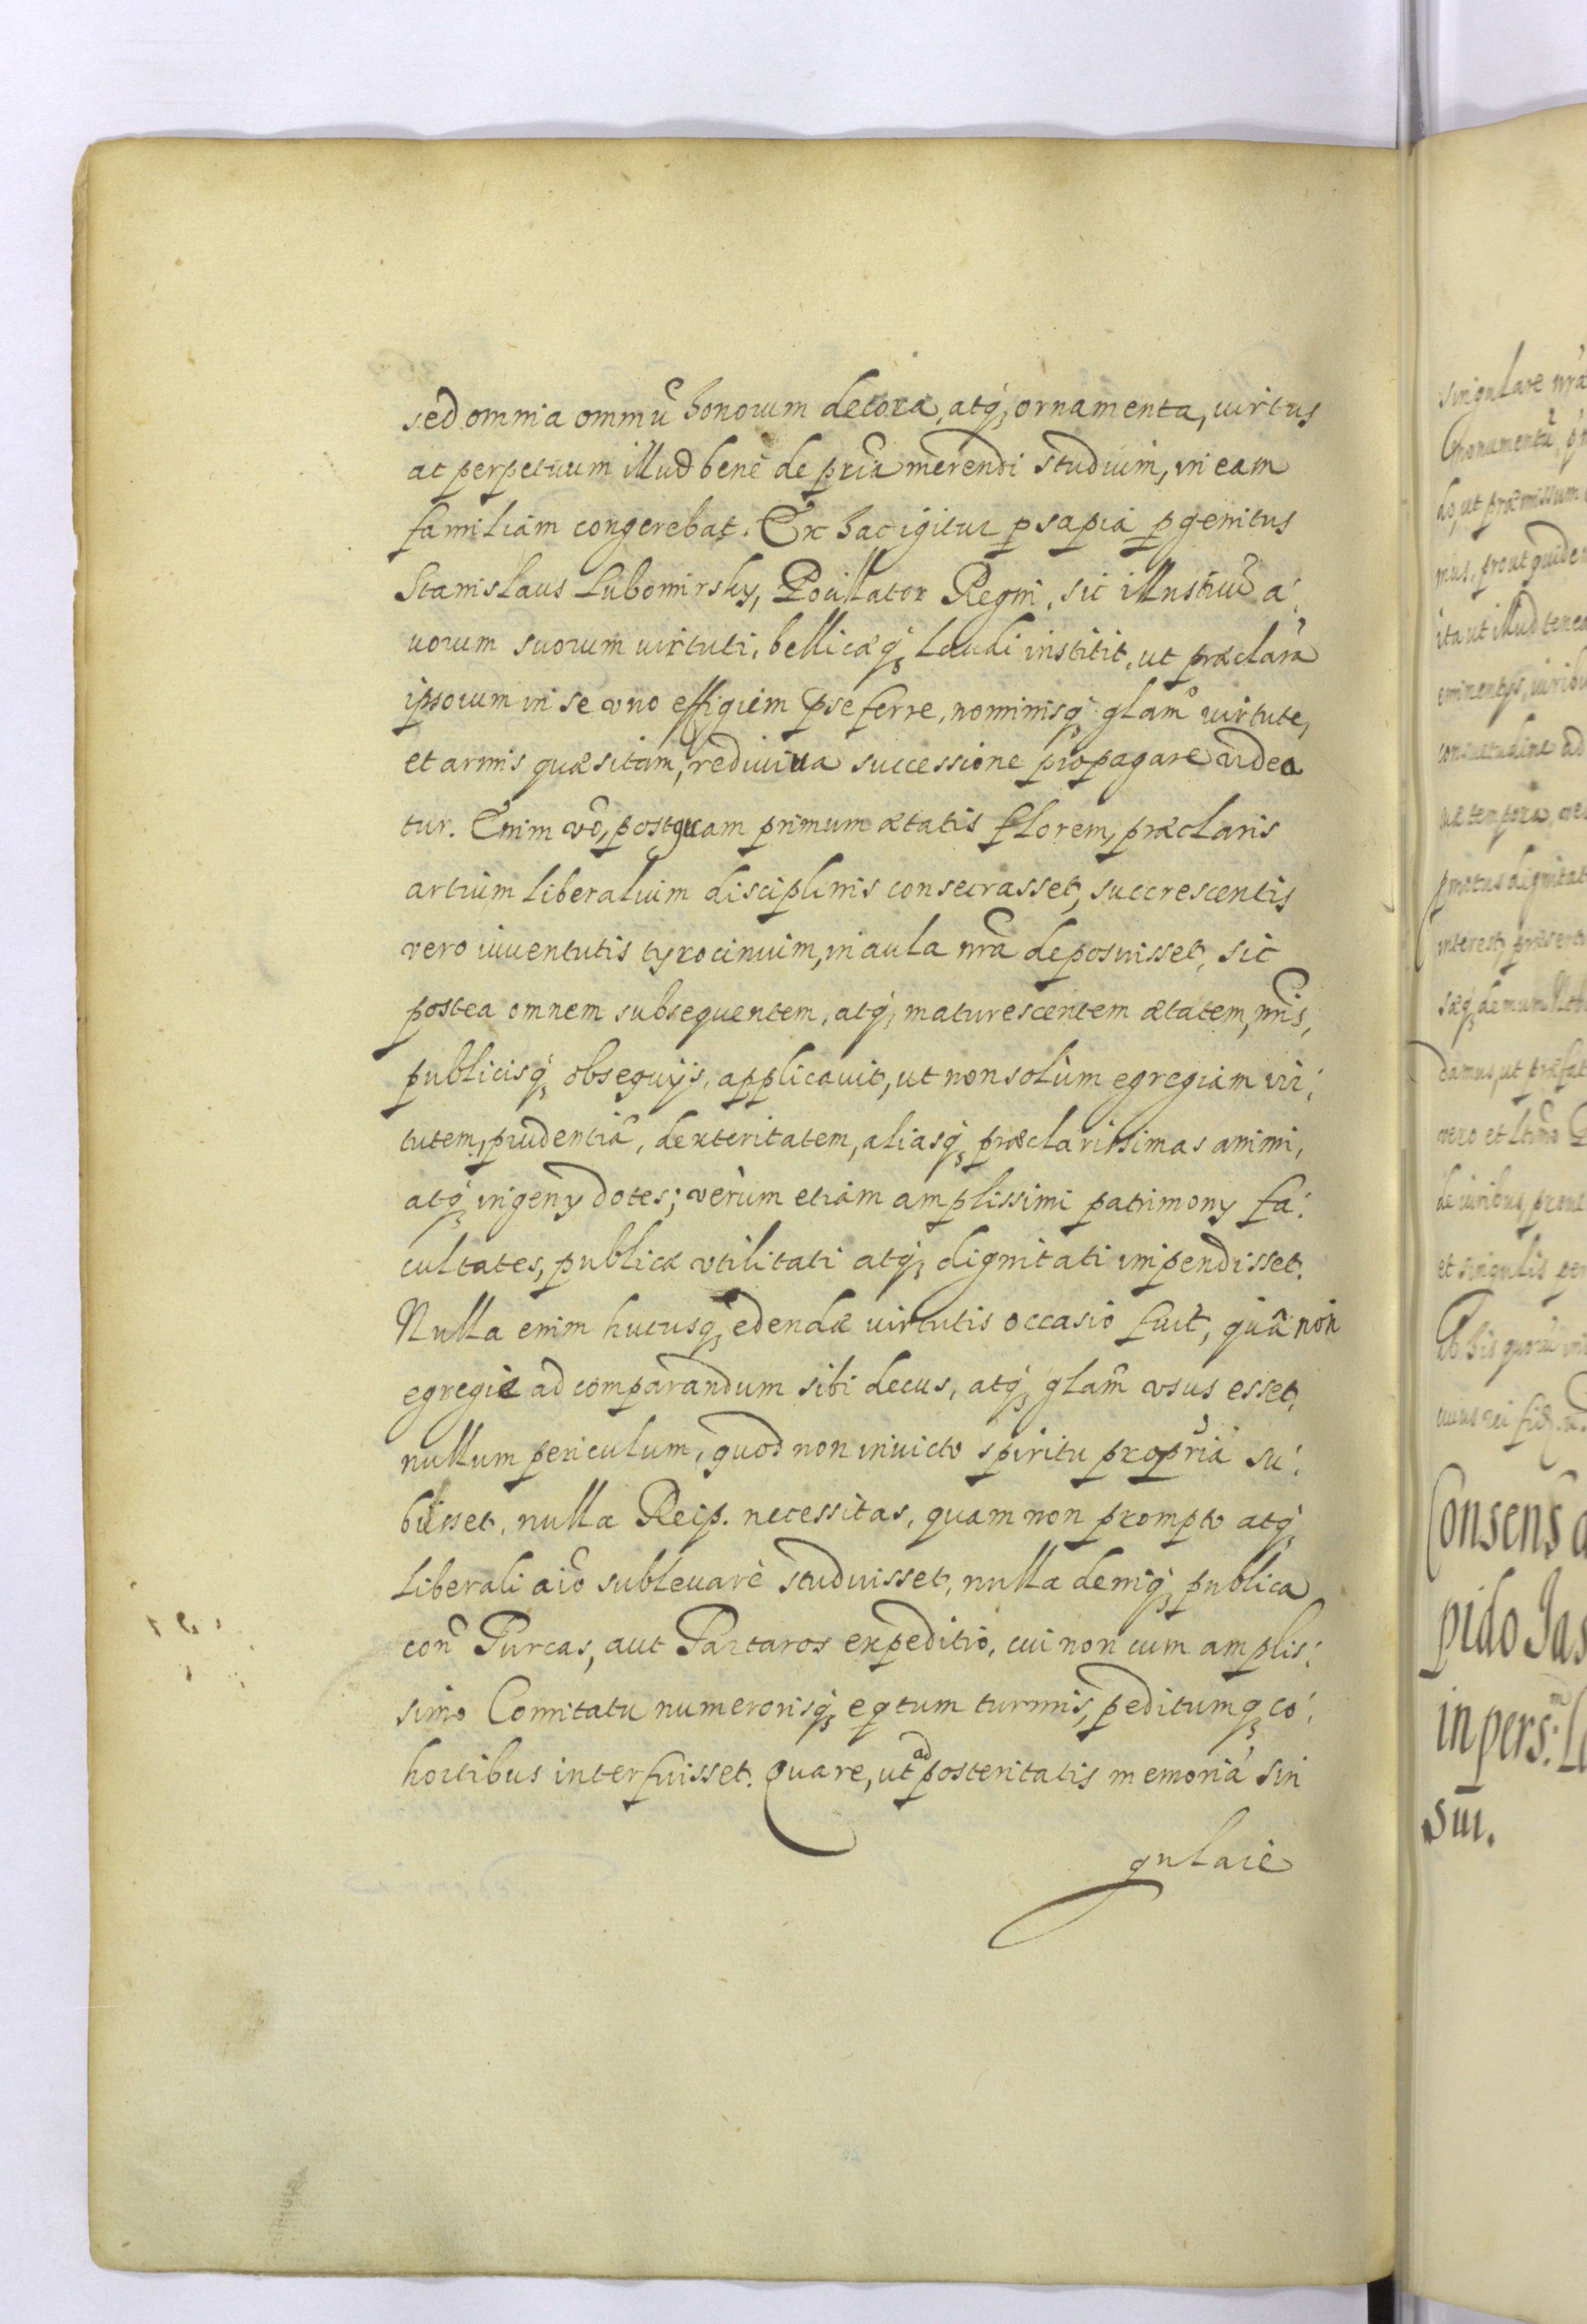 sed omnia omniũ honorum decora, atq; ornamenta, uirtus
ac perpetuum illud bene de pr̃ia merendi studium, in eam
familiam congerebat. Ex hac igitur ꝓsapia ꝓgenitus
Stanislaus Lubomirsky, Pocillator Regni, sic illustriũ a:
uorum suorum uirtuti, bellicæq; laudi institit, ut præclarã
ipsorum in se vno effigiem ꝓse ferre, nominisq; glam̃ uirtute,
et armis quæsitam, rediuiua successione propagare uidea
tur. Enim vō, postquam primum ætatis florem, præclaris
artium liberalium disciplinis consecrasset, succrescentis
vero iuuentutis tyrocinium, in aula nr̃a deposuisset, sic
postea omnem subsequentem, atq; maturescentem ætatem, nr̃is,
publicisq; obsequijs, applicauit, ut non solùm egregiam uir:
tutem, prudentiã, dexteritatem, aliasq; præclarissimas animi,
atq; ingeny dotes; verùm etiam amplissimi patrimony fa:
cultates, publicæ vtilitati atq; dignitati impendisset.
Nulla enim hucusq; edendæ uirtutis occasio fuit, quã non
egregie ad comparandum sibi decus, atq; glam̃ vsus esset,
nullum periculum, quod non inuicto spiritu propria su:
bisset, nulla Reip. necessitas, quam non prompto atq;
liberali aĩo subleuare studuisset, nulla deniq; publica
con̄ Turcas, aut Tartaros expeditio, cui non cum amplis:
simo Comitatu numerorisq; eqtum turmis, peditumq; co:
hortibus interfuisset. Quare, ut ad posteritatis memoriã sin
gulare
singulare nr̃æ
monumentũ,
do, ut præmissum
mus, prout quidem
ita ut illud tenea
consuetudine ad
interest, præsenti
sæq; demum
damus, ut præfat
et singulis
Consens̃
pido Jas
in pers:
sui.